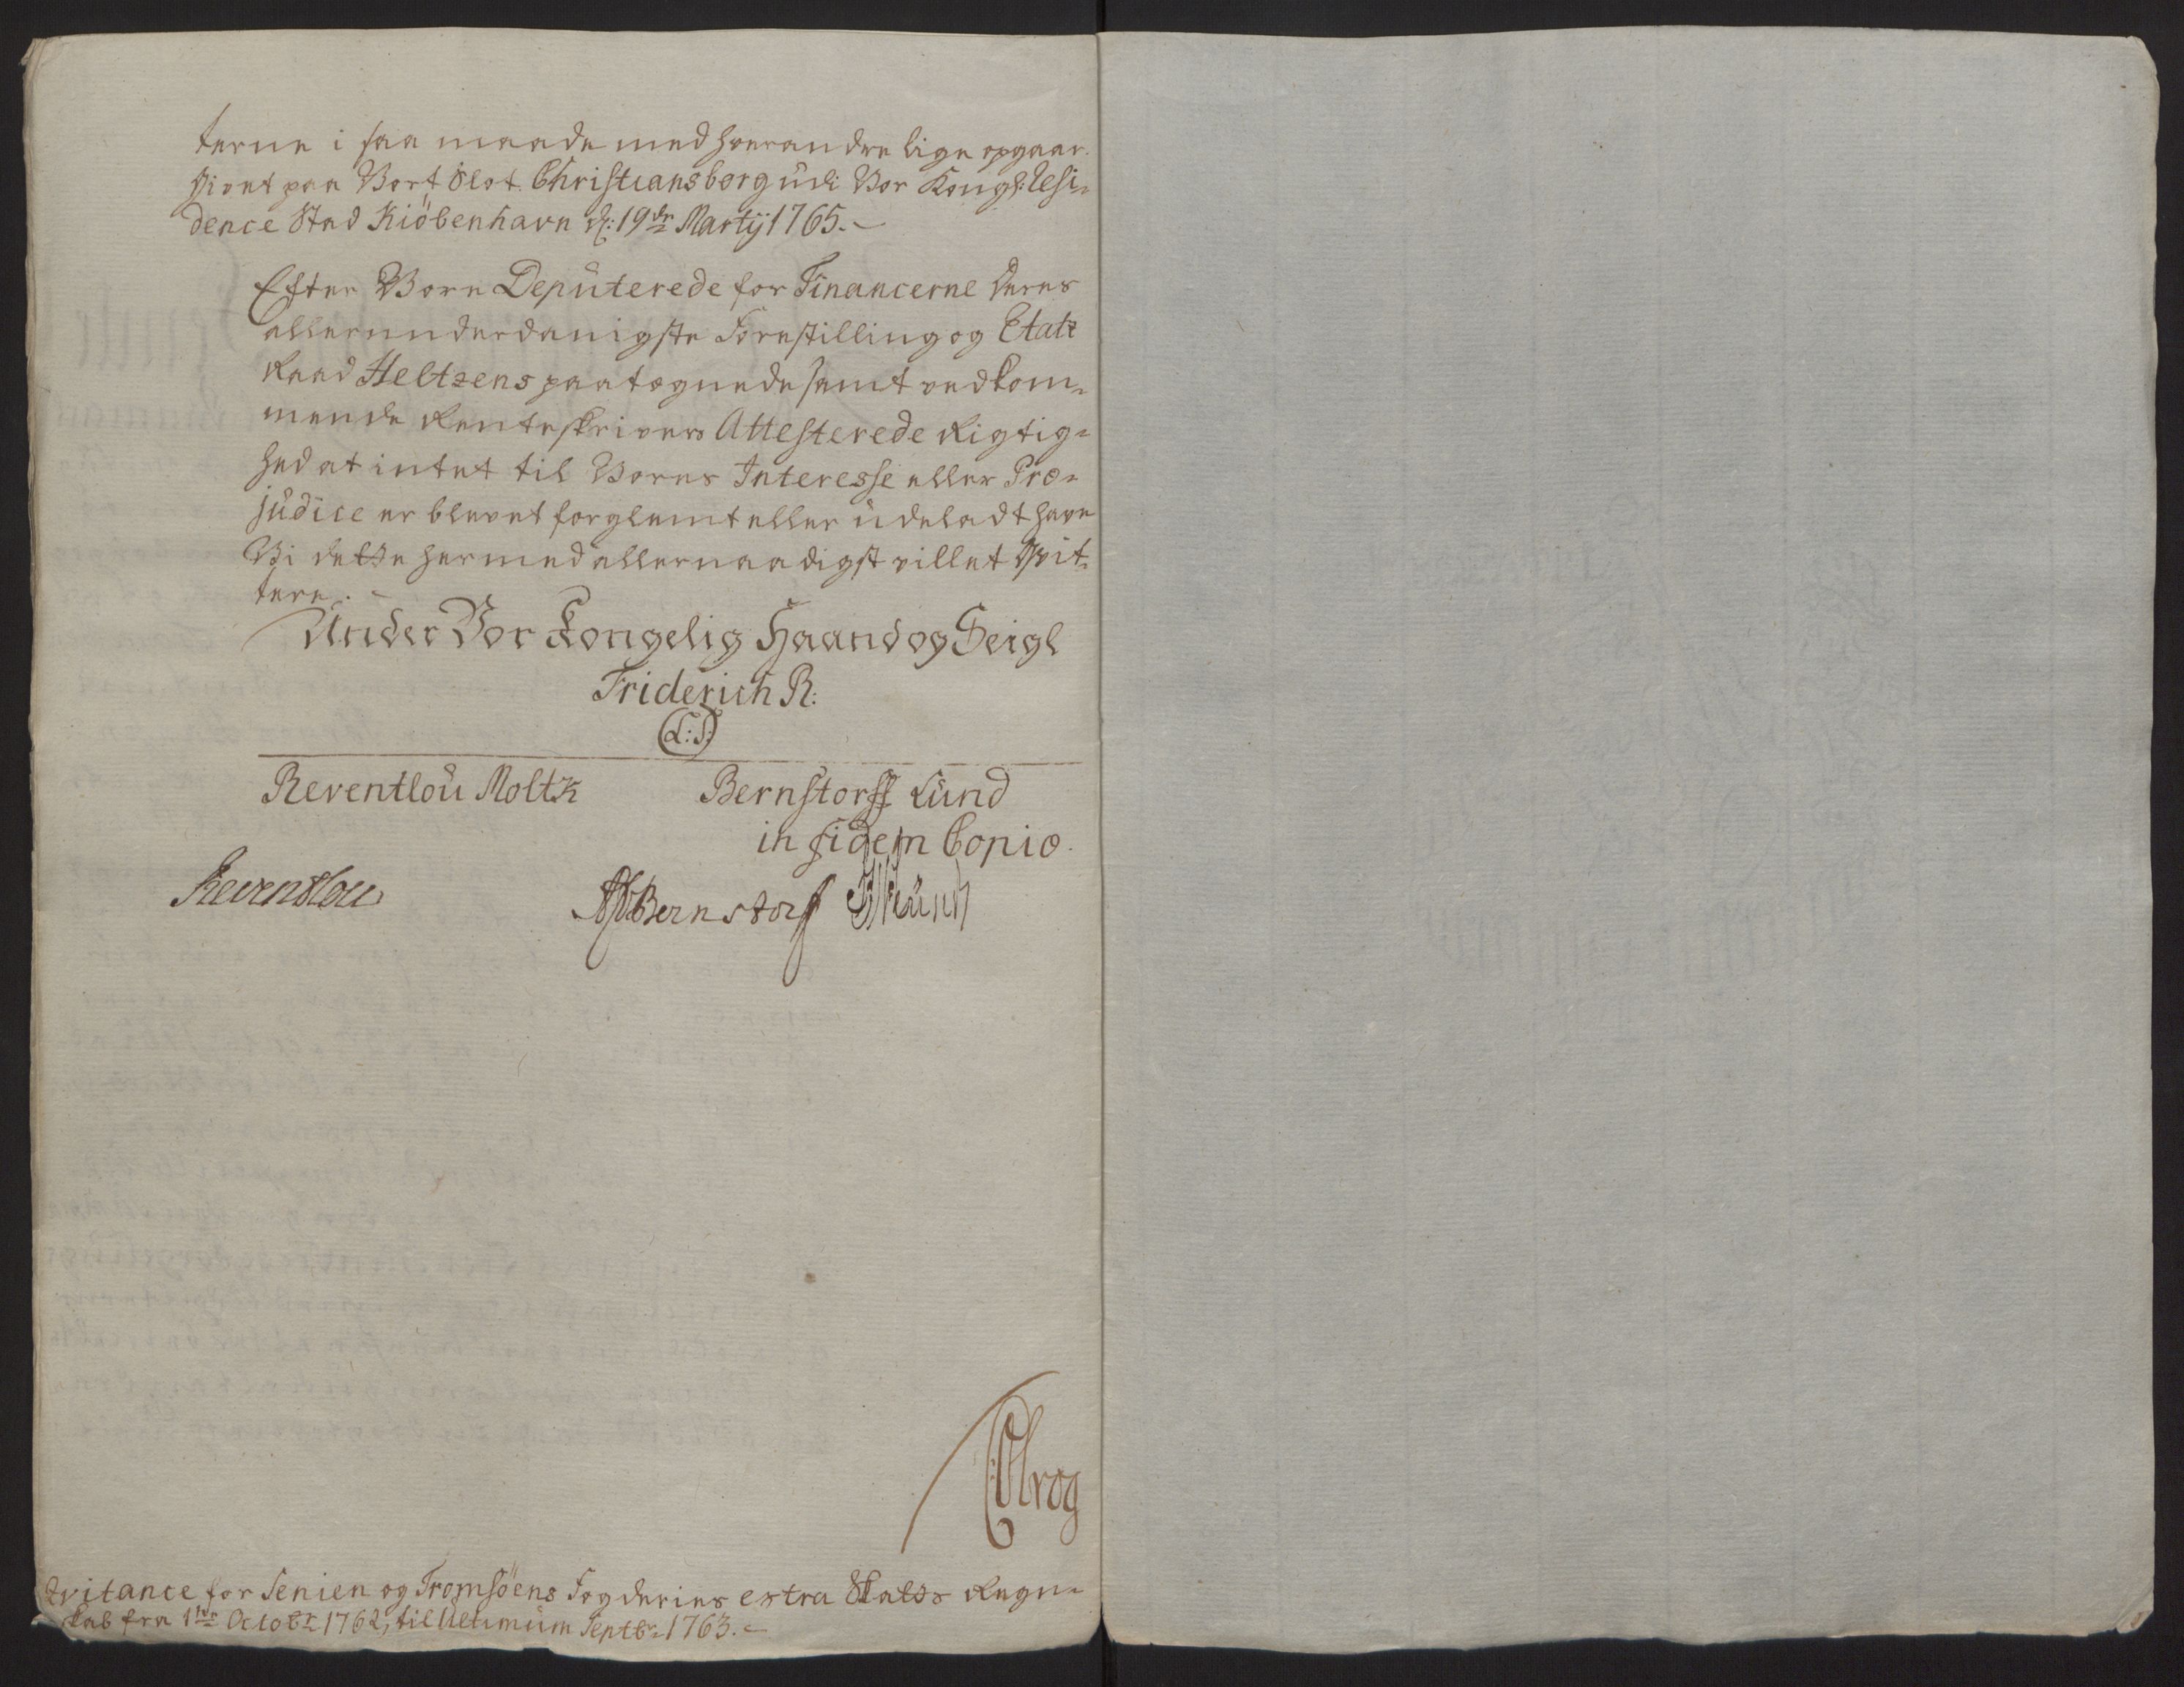 terne i saa maade med hverandre lige opgaar.
Givet paa Vort Slot Christiansborg udi Vor Kongl: Resi-
dence Stad Kiöbenhavn d: 19de Martij 1765.
Efter Vore Deputerede for Financerne deres
allerunderdanigste Forestilling og Etatz
Raad Heltzens paategnede samt vedkom-
mende Renteskrivers Attesterede Rigtig-
hed at intet til Vores Interesse eller Præ-
judice er blevet forglemt eller udeladt have
Vi dette hermed allernaadigst villet Qvit-
tere.
Under Vor Kongelig Haand og Seigl
Friderich R:
(L:S:)
Reventlou Moltk Bernstorff Lund
in fidem Copiæ.
Reventlou Bernstorf Lund
Qvitance for Senien og Tromsöens Fogderies extra Skatts Regn-
skab fra 1te Octobr 1762, til Ultimum Septbr 1763.